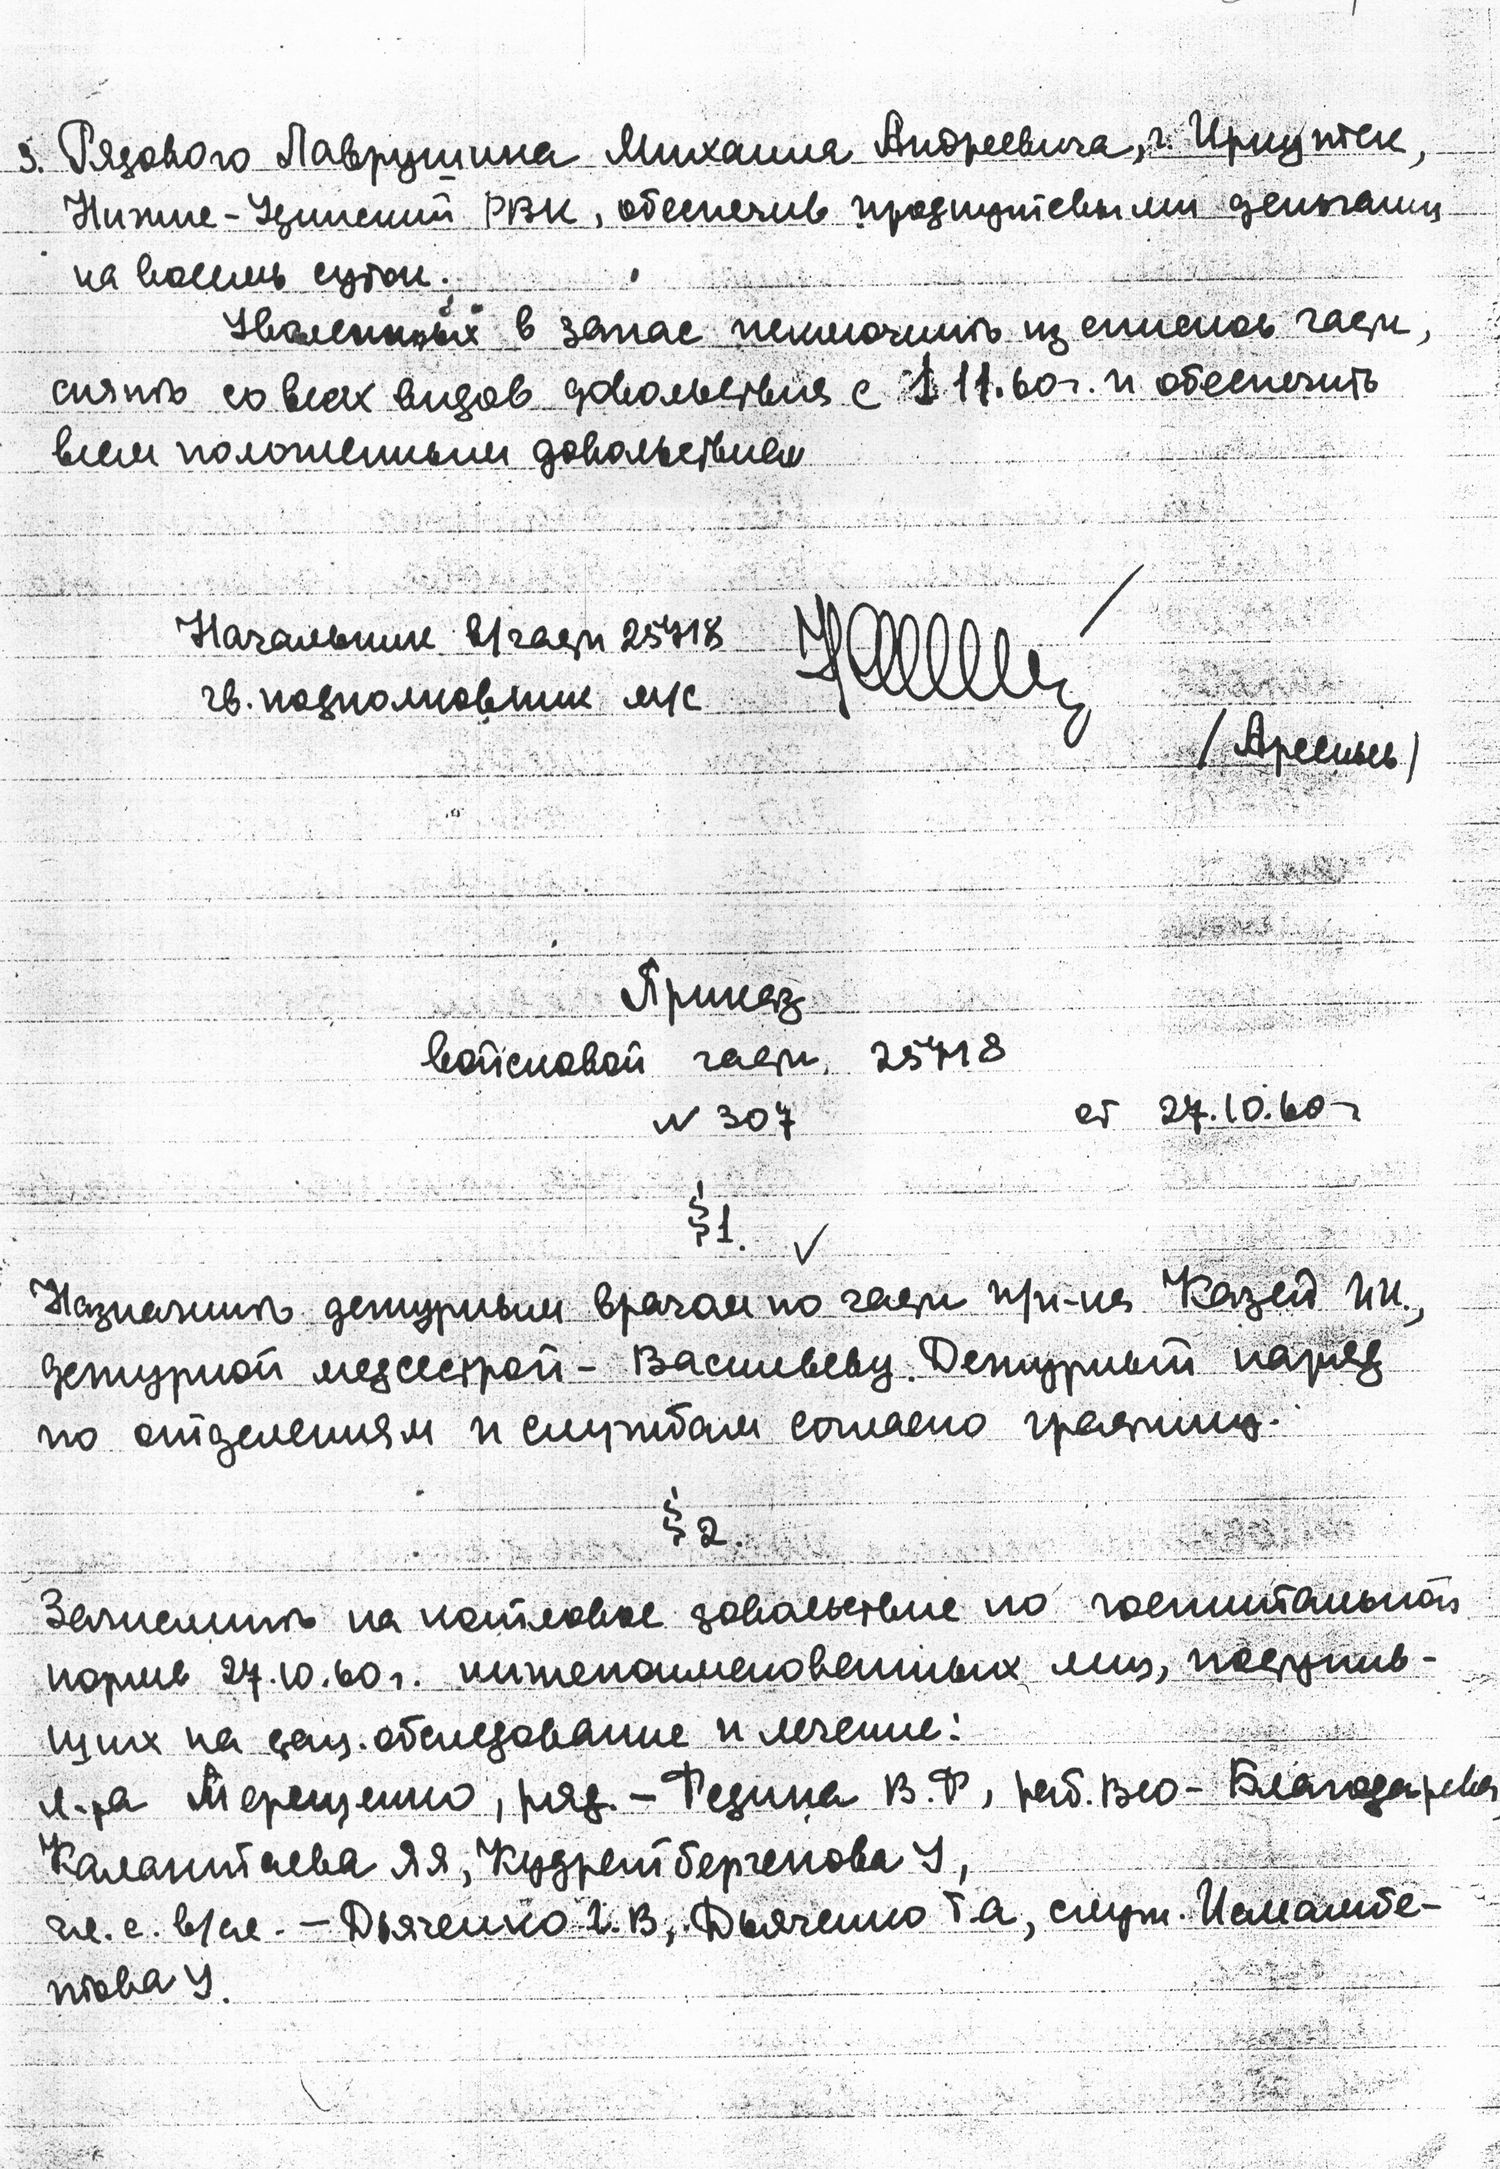 5. Рядового Лаврушина Михаила Андреевича, г. Иркутск,
Нижне-Удинский РВК, обеспечив продпутевыми деньгами
на восемь суток.
Уволенных в запас исключить из списков части,
снять со всех видов довольствия с 1 11.60г. и обеспечить
всем положенным довольствием
Начальник в/части 25718
гв. подполковник м/с
/Арсеньев/
Приказ
войсковой части 25718
№ 307 от 27.10.60г
§1.
Назначить дежурным врачом по части п/п-ка Казей И.И.,
дежурной медсестрой - Васильеву. Дежурный наряд
по отделениям и службам согласно графику.
§2.
Зачислить на котловое довольствие по госпитальной
норме 27.10.60г. нижепоименованных лиц, поступив-
ших на стац. обследование и лечение:
л-та Терещенко, ряд. - Федина В.Ф, раб. ВСО - Благодарева,
Калантаева Я Я, Кудрейберченова У,
чл. с. в/сл. - Дьяченко Г.В, Дьяченко Т.А, служ. Исмамбе-
това У.